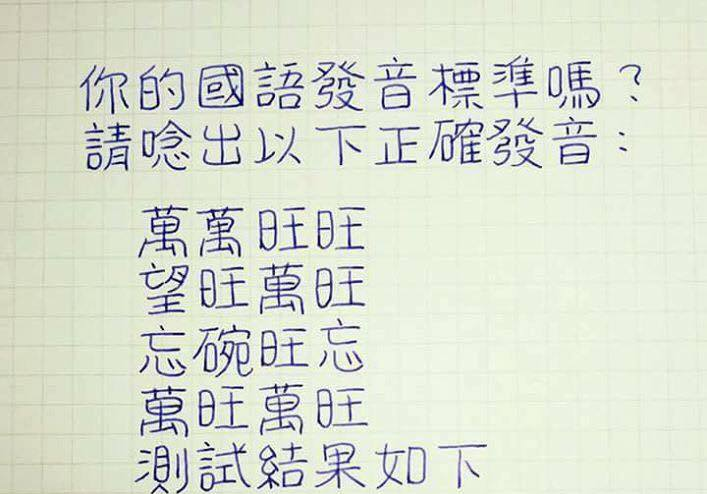 你的國語發音標準嗎？
請唸出以下正確發音：
萬萬旺旺
望旺萬旺
忘碗旺忘
萬旺萬旺
測試結果如下